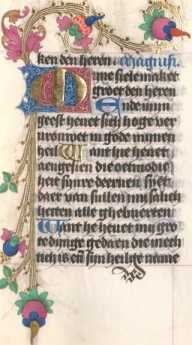 ken den heren Magnificat
Mine siele maket
groet den heren
Ende min
geest heuet sich hoge ver
vrouwet in gode minen
heil Want hie heuet
aengesien die oetmodic
heit sinre deernen
daer van sullen my salich
heiten alle gheboerten
Want he heuet my gro
te dinge gedaen die mech
tich is en sin heilge name